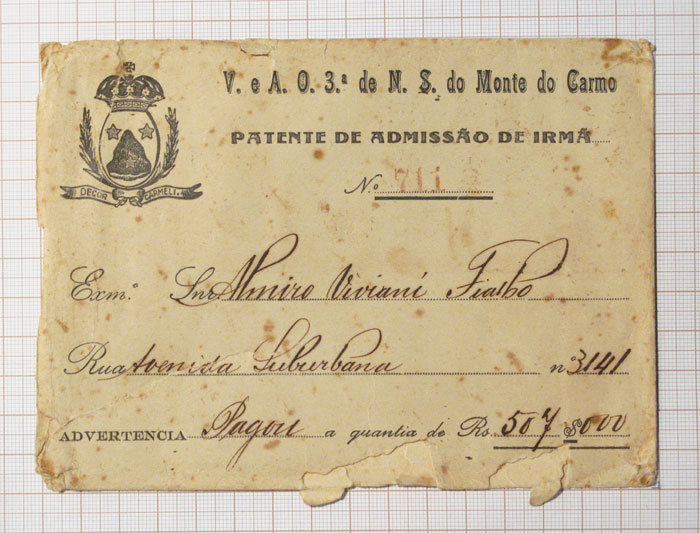 V. e A. O. 3.ª de N. S. do Monte do Carmo
PATENTE DE ADMISSÃO DE IRMÃ
N.º 711
DECOR CARMELI.
Exm.º Snr Almiro Viviani Fialho
Rua Avenida Suburbana nº 3141
ADVERTENCIA Pagou a quantia de Rs. 507$000